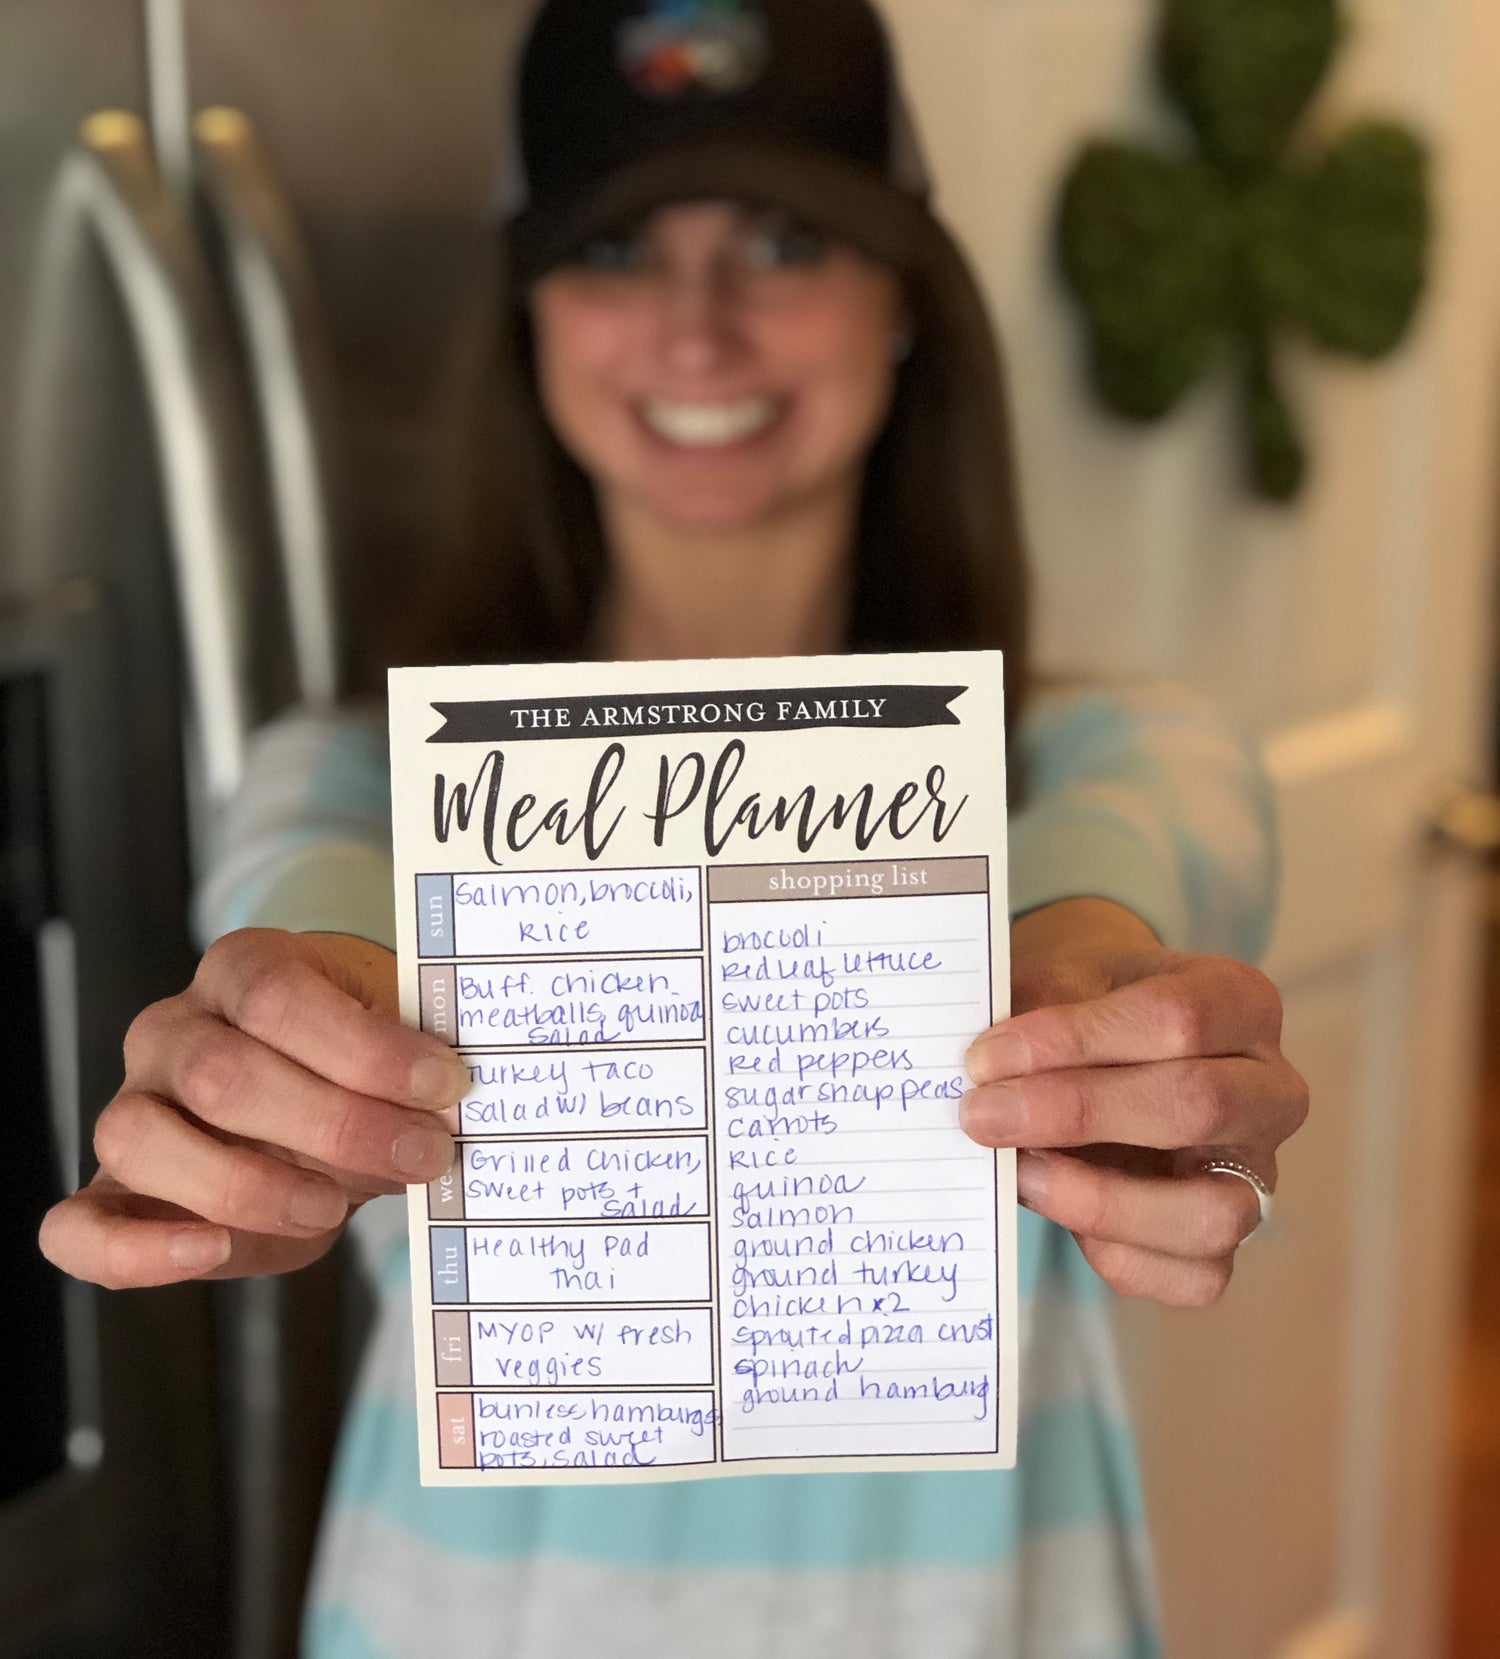 THE ARMSTRONG FAMILY
Meal Planner
sun
Salmon, broccoli,
Rice
mon
Buff. chicken
meatballs, quinoa
salad
Turkey taco
salad w/ beans
we
Grilled chicken,
sweet pots +
salad
thu
Healthy Pad
Thai
fri
MYOP w/ fresh
veggies
sat
bunless hamburgs,
roasted sweet
pots, salad
shopping list
broccoli
Red leaf lettuce
sweet pots
cucumbers
Red peppers
sugar snap peas
carrots
Rice
quinoa
salmon
ground chicken
ground turkey
chicken x 2
sprouted pizza crust
spinach
ground hamburg